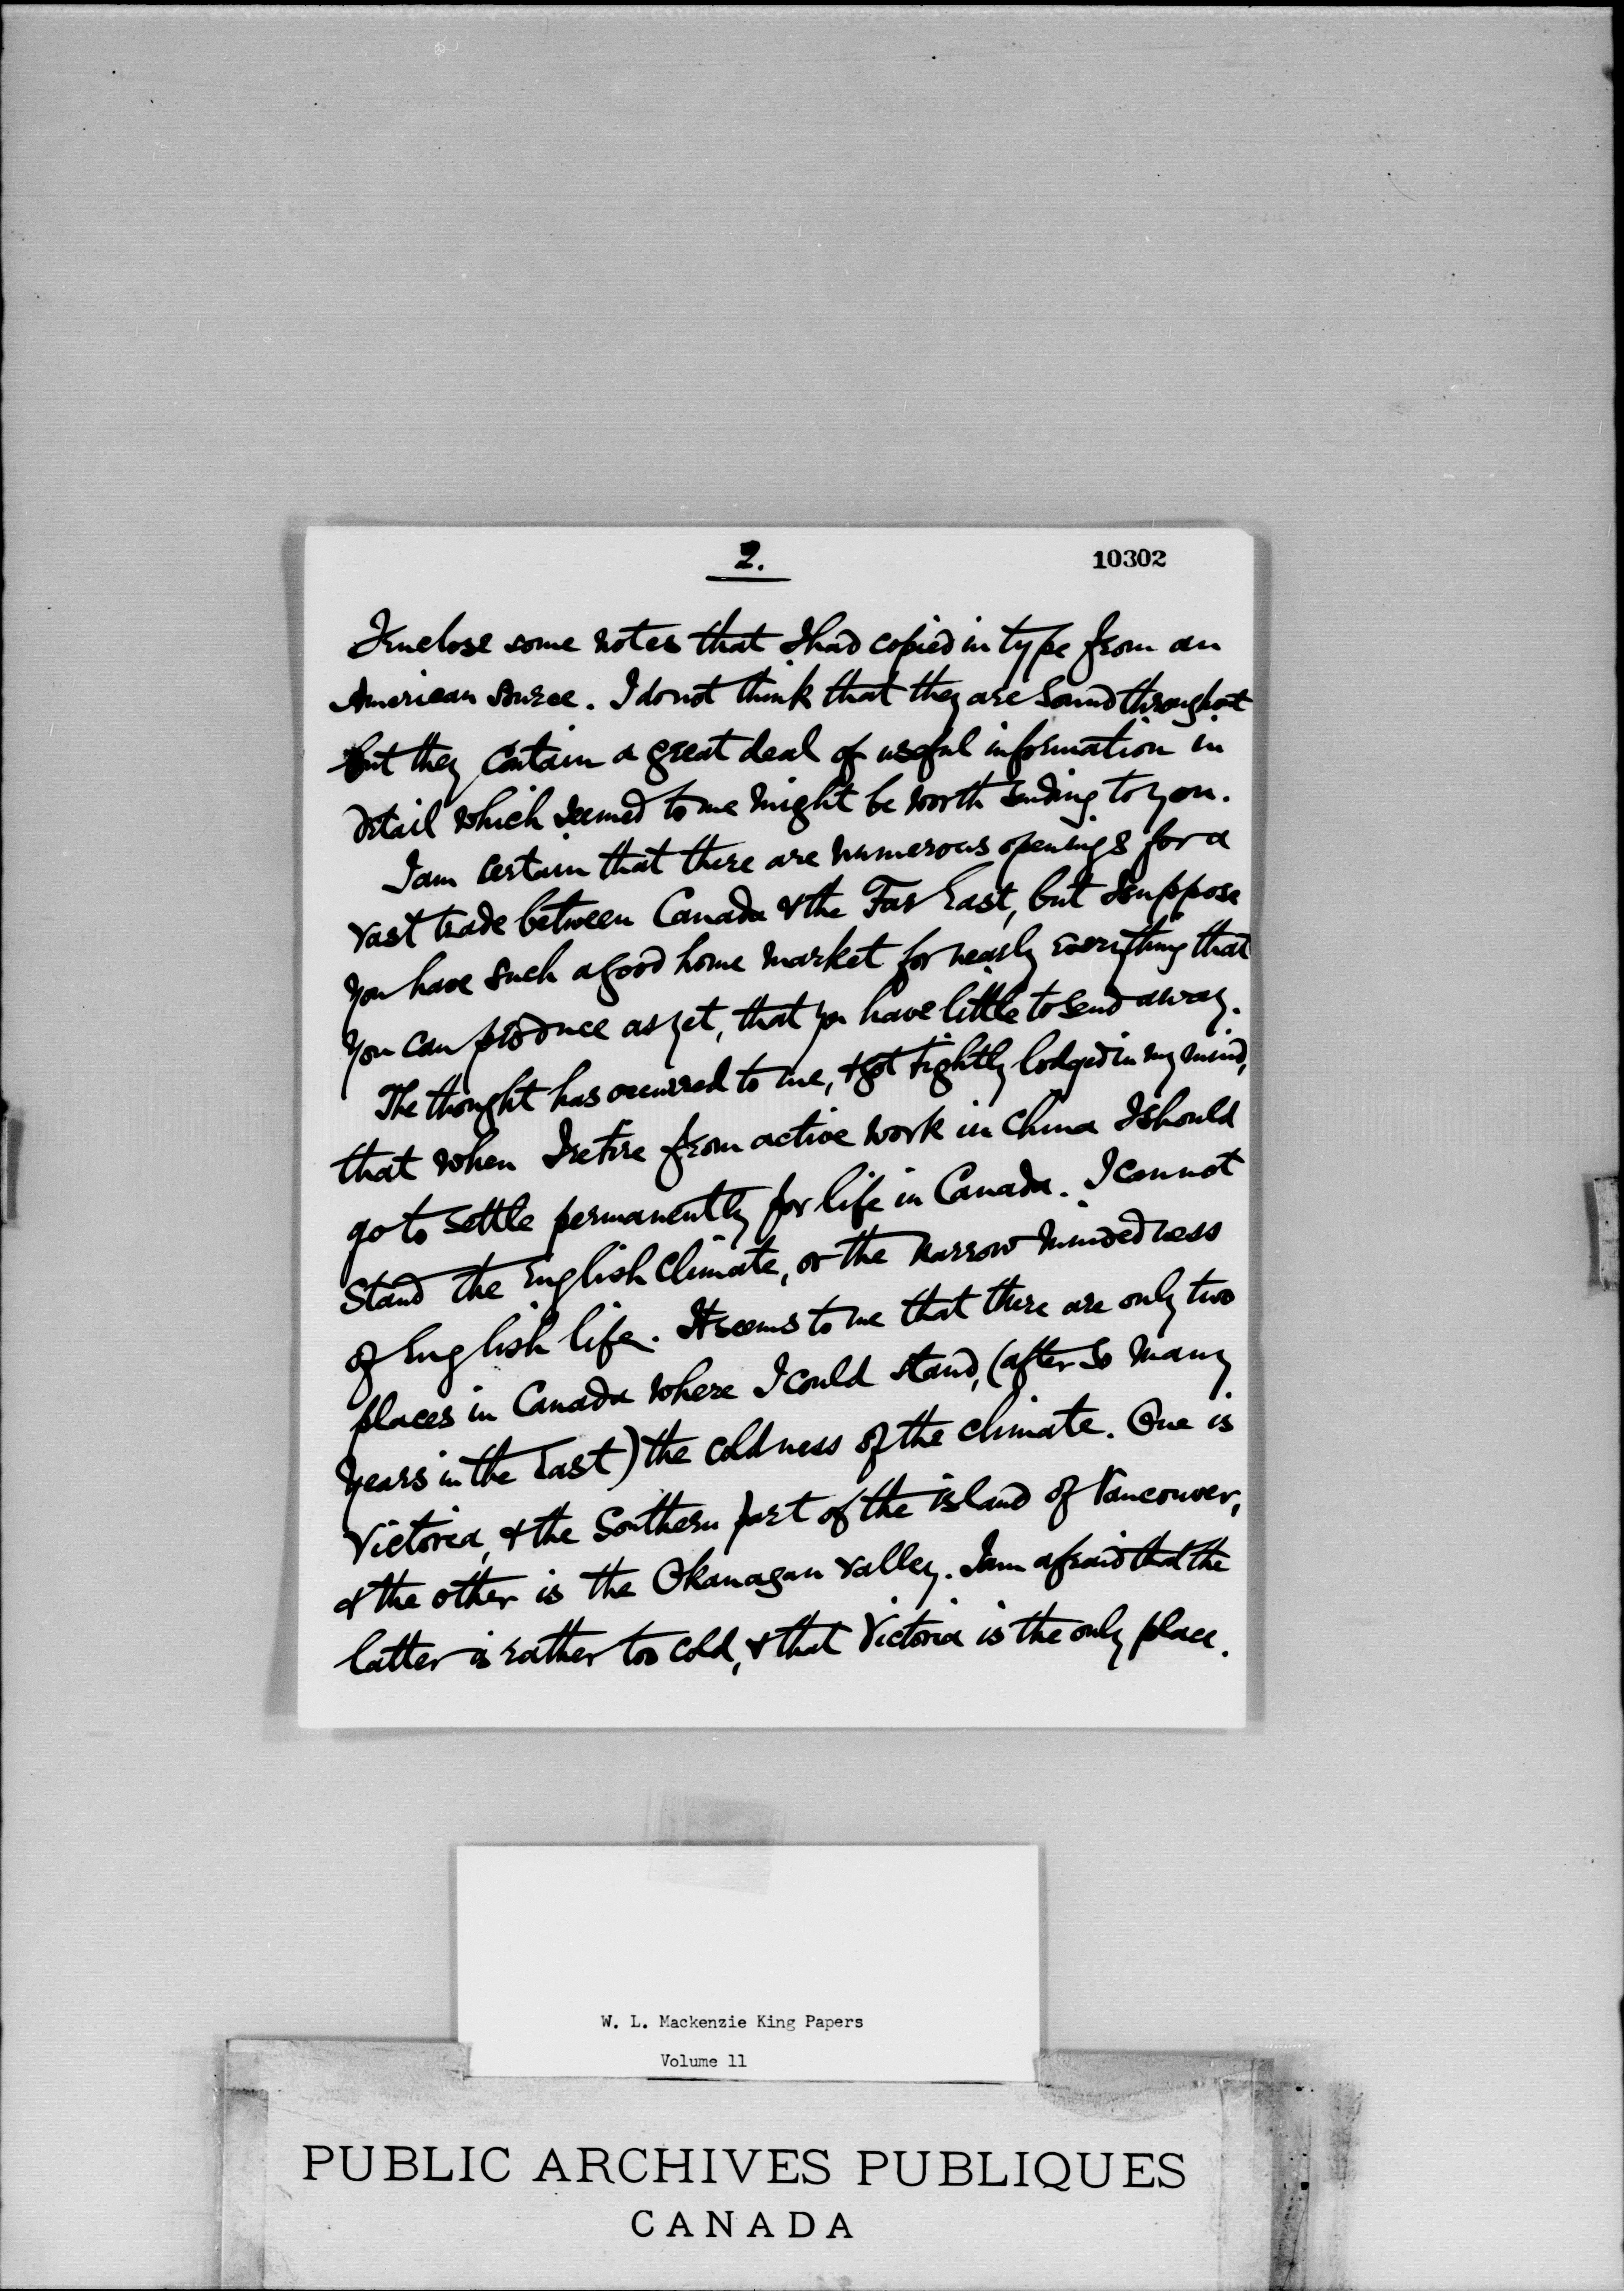 2.
10302
I enclose some notes that I had copied in type from an
American source. I do not think that they are sound throughout
but they contain a great deal of useful information in
detail which seemed to me might be worth sending to you.
I am certain that there are numerous openings for a
vast trade between Canada & the Far East, but I suppose
you have such a good home market for nearly everything that
you can produce as yet, that you have little to send away.
The thought has occurred to me, & got tightly lodged in my mind,
that when I retire from active work in China I should
go to settle permanently for life in Canada. I cannot
stand the English climate, or the narrow mindedness
of English life. It seems to me that there are only two
places in Canada where I could stand, (after so many
years in the East) the coldness of the climate. One is
Victoria, & the Southern part of the island of Vancouver,
& the other is the Okanagan valley. I am afraid that the
latter is rather too cold, & that Victoria is the only place.
W. L. Mackenzie King Papers
Volume 11
PUBLIC ARCHIVES PUBLIQUES
CANADA